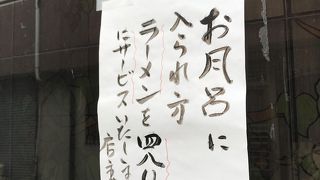 お風呂に
入られ方
ラーメンを四八
にサービスいたしま
店主